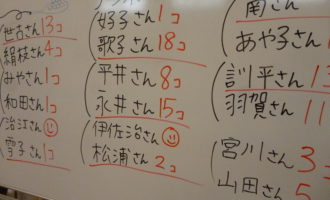 世古さん13コ
絹枝さん4コ
みやさん1コ
和田さん1コ
治江さん
雪子さん1コ
好子さん1コ
歌子さん18コ
平井さん8コ
永井さん15コ
伊佐治さん
松浦さん2コ
南さん
あや子さん
訓平さん
羽賀さん
宮川さん3
山田さん5